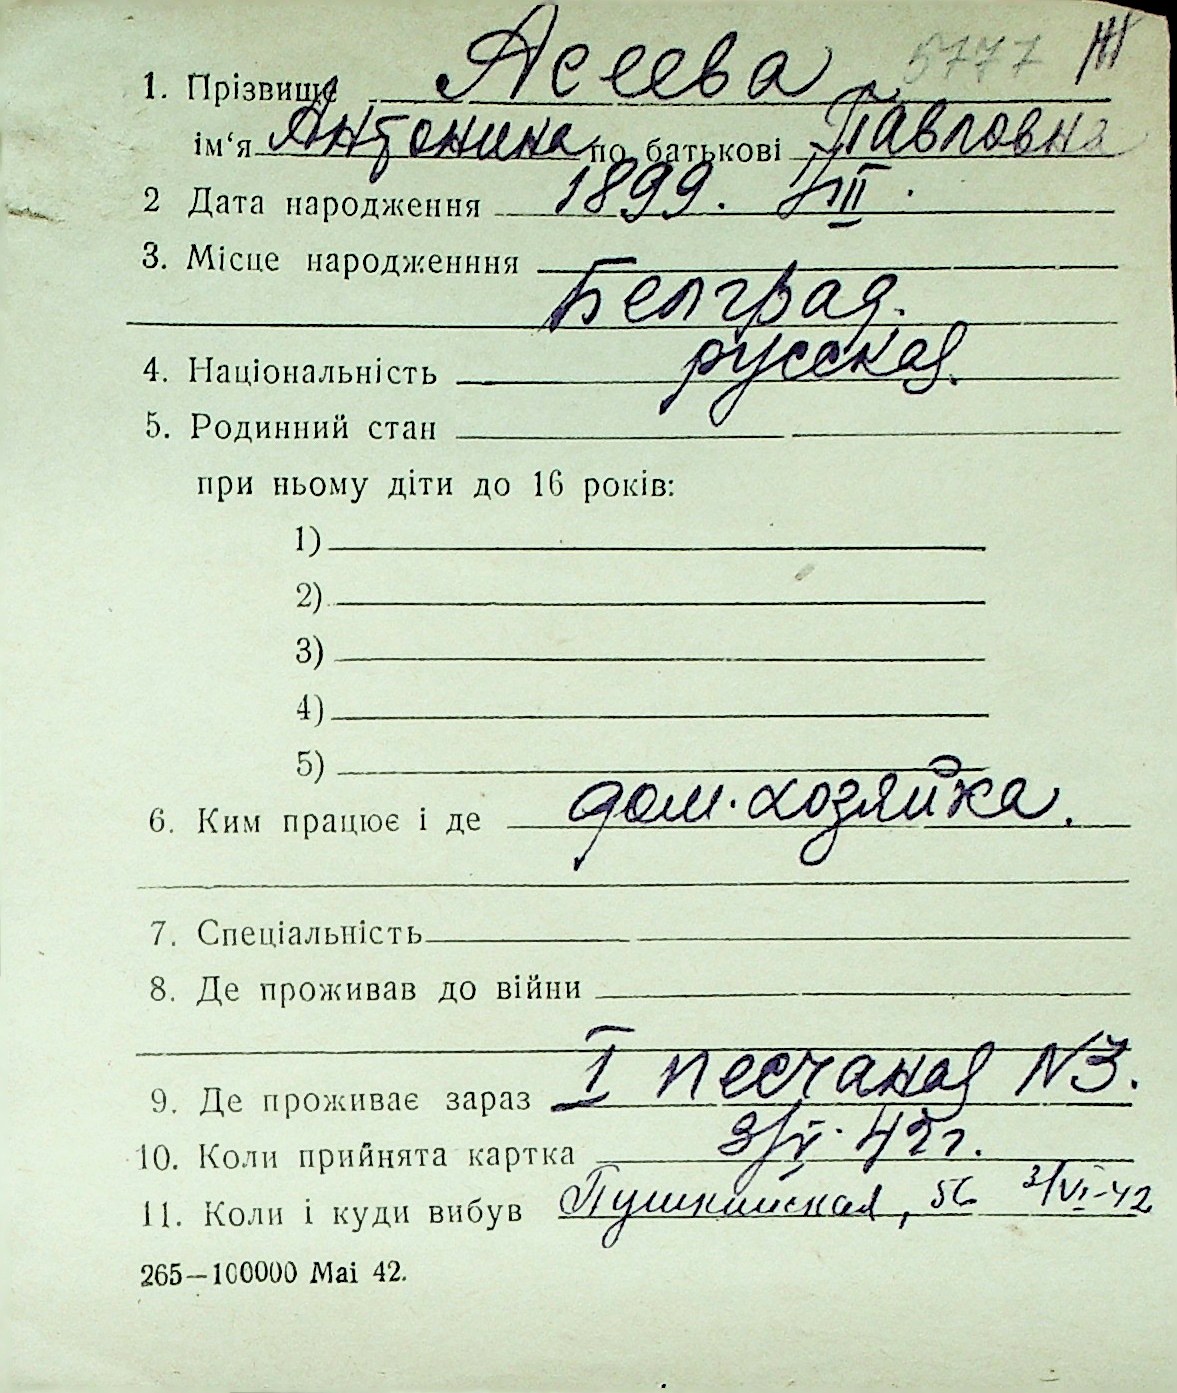 5777 Ж
1. Прізвище Асеева
ім'я Антонина по батькові Павловна
2 Дата народження 1899. III.
3. Місце народженння
Белград.
4. Національність русская.
5. Родинний стан
при ньому діти до 16 років:
1)
2)
3)
4)
5)
6. Ким працює і де дом. хозяйка.
7. Спеціальність
8. Де проживав до війни
9. Де проживає зараз I песчаная N3.
10. Коли прийнята картка 3/V. 42 г.
11. Коли і куди вибув Пушкинская, 56 3/VI-42
265—100000 Mai 42.